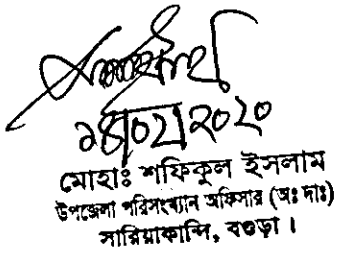 ২০২০
মোহাঃ শফিকুল ইসলাম
উপজেলা পরিসংখ্যান অফিসার (অঃ দাঃ)
সারিয়াকান্দি, বগুড়া।